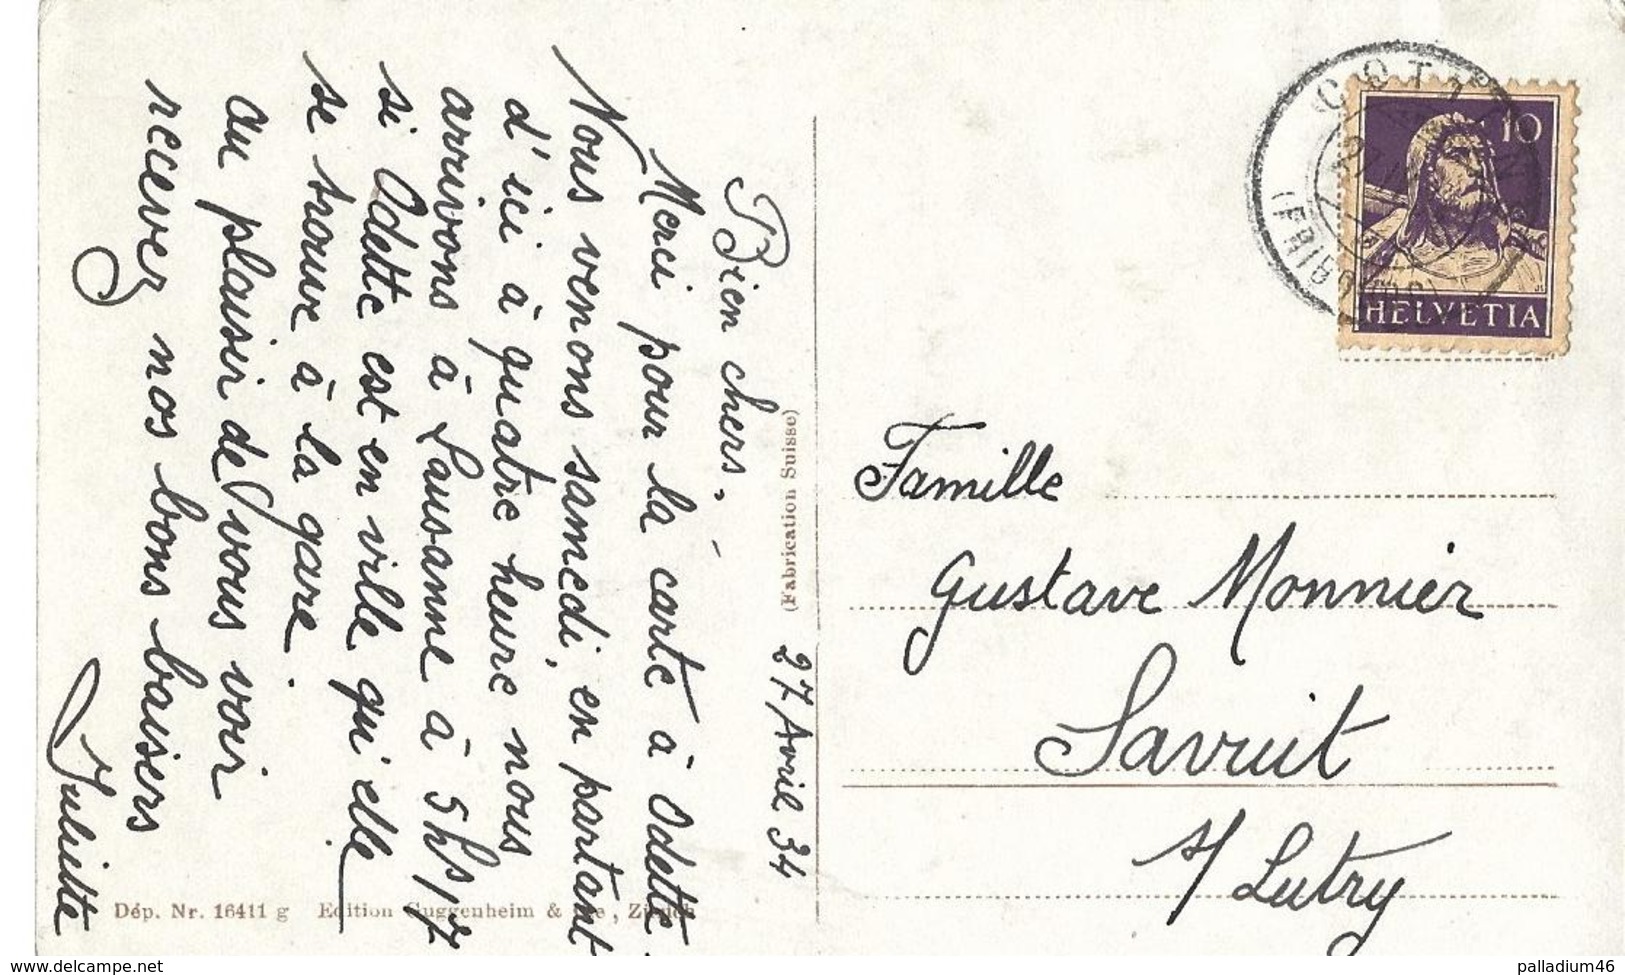 27 Avril 34
Bien chers. -
Merci pour la carte à Odette.
Nous venons samedi, en partant
d'ici à quatre heure nous
arrivons à Lausanne à 5h,17
si Odette est en ville qu'elle
se trouve à la gare
au plaisir de vous voir
recevez nos bons baisers
Juliette
(Fabrication Suisse)
Dép. Nr. 16411 g Edition Guggenheim & Zürich
10
HELVETIA
(FRIBOURG)
Famille
Gustave Monnier
Savuit
s/ Lutry
www.delcampe.net
palladium46